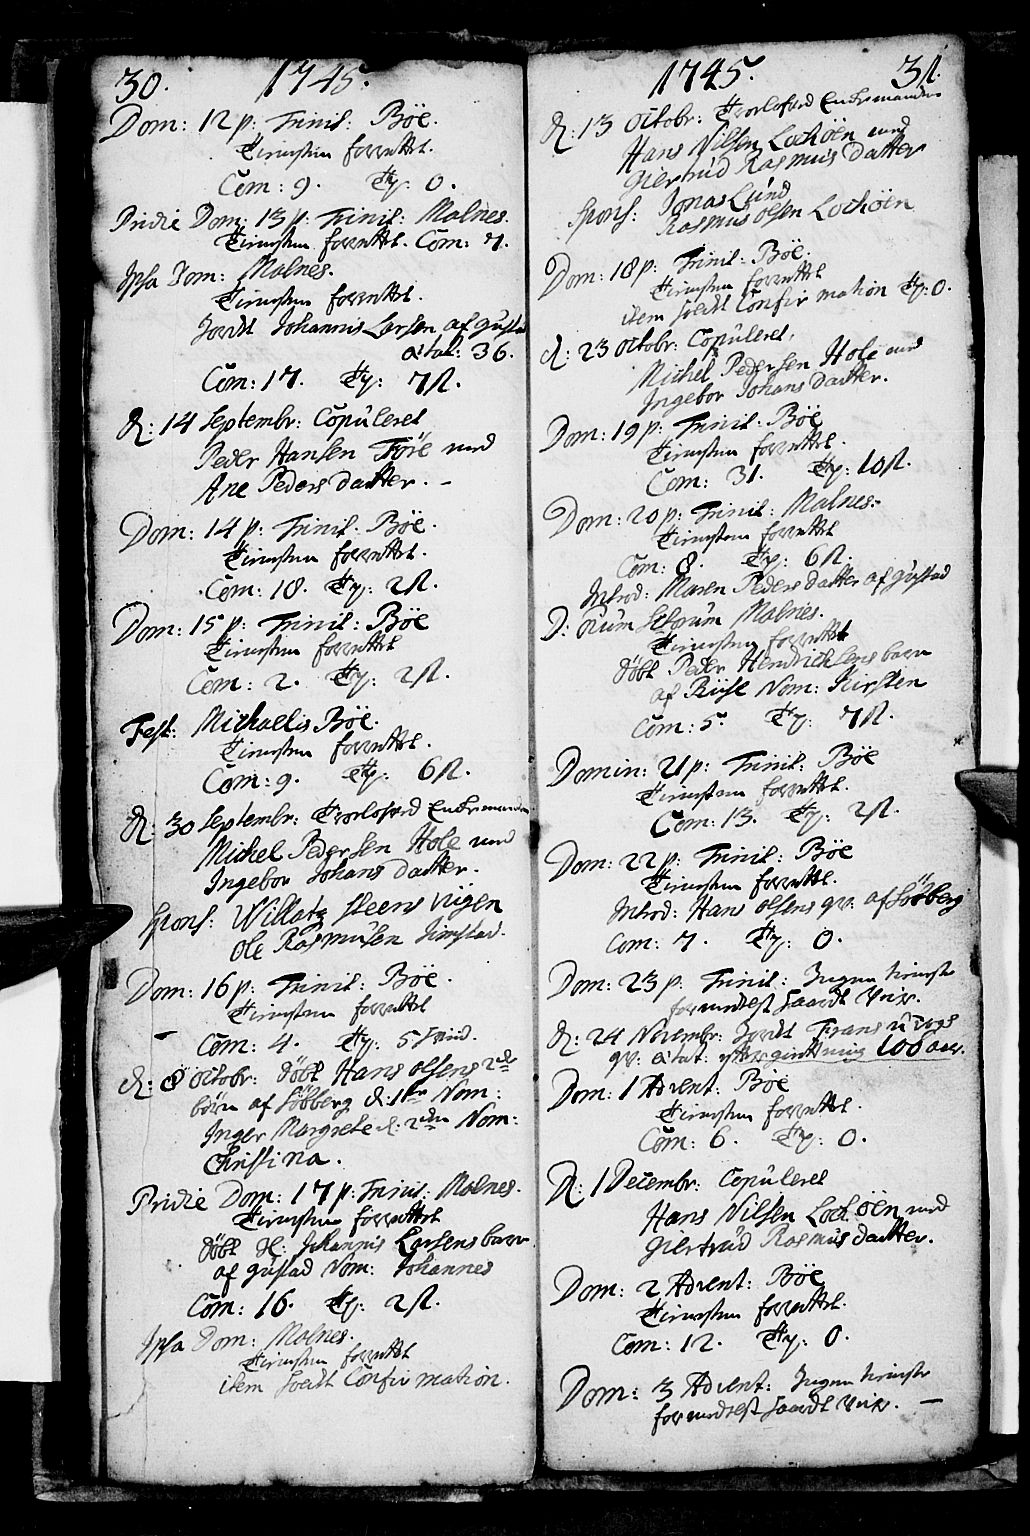 30. 1745.
Dom: 12 p: Trinit: Bøe.
Tienesten forrettet.
Com: 9. Tf: 0.
Pridie Dom: 13 p: Trinit: Malnes.
Tienesten forrettet. Com: 7.
Ipsa Dom: Malnes.
Tienesten forrettet.
Jordet Johannis Larsen af Gustad
ætat: 36.
Com: 17. Tf: 7 ß.
D: 14 Septembr: Copuleret
Peder Hansen Føre med
Ane Peders datter. -
Dom: 14 p: Trinit: Bøe.
Tienesten forrettet.
Com: 18. Tf: 2 ß.
Dom: 15 p: Trinit: Bøe
Tienesten forrettet
Com: 2. Tf: 2 ß.
Fest: Michaelis Bøe.
Tienesten forrettet.
Com: 9. Tf: 6 ß.
D: 30 Septembr: Trolofved Enkemanden
Michel Pedersen Hole med
Ingebor Johans datter.
Spons: Willatz Steens
Ole Rasmusen
Dom: 16 p: Trinit: Bøe.
Tienesten forrettet
Com: 4. Tf: 5
d: 8 Octobr: døbt Hans Olsens 2de
børn af Søberg d: 1te Nom:
Inger Margrete d: 2den Nom:
Christina.
Pridie Dom: 17 p: Trinit: Malnes.
Tienesten forrettet
døbt Sl: Johannis Larsens barn
af Gustad Nom: Johannes
Com: 16. Tf: 2 ß.
Ipsa Dom: Malnes.
Tienesten forrettet
item holdt Confirmation.
1745. 31.
d: 13 Octobr: Trolofved Enkemanden
Hans Nilsen Lochøen med
Giertrud Rasmus datter
Spons: Jonas Lund
Rasmus Olsen Lochøen
Dom: 18 p: Trinit: Bøe.
Tienesten forrettet
item holdt Confirmation Tf: 0.
d: 23 Octobr: Copuleret,
Michel Pedersen Hole med
Ingebor Johans datter.
Dom: 19 p: Trinit: Bøe
Tienesten forrettet.
Com: 31. Tf: 10 ß.
Dom: 20 p: Trinit: Malnes.
Tienesten forrettet.
Com: 8. Tf: 6 ß.
Introd: Maren Peders datter af Gustad
D: Malnes.
Tienesten forrettet
døbt Peder Hendrichsens barn
af Riise Nom: Kirsten
Com: 5. Tf: 7 ß.
Domin: 21 p: Trinit: Bøe
Tienesten forrettet.
Com: 13. Tf: 2 ß.
Dom: 22 p: Trinit: Bøe
Tienesten forrettet.
Introd: Hans Olsens qv: af Søberg
Com: 7. Tf: 0.
Dom: 23 p: Trinit: Ingen tieniste
formedelst haardt Veir.
d: 24 Novembr: Jordet Frans
qv: ætat: 100 aar.
Dom: 1 Advent: Bøe
Tienesten forrettet.
Com: 6. Tf: 0.
D: 1 Decembr: Copuleret
Hans Nilsen Lochøen med
Giertrud Rasmus datter.
Dom: 2 Advent: Bøe
Tienesten forrettet.
Com: 12. Tf: 0.
Dom: 3 Advent: Ingen tieniste
formedelst haardt Veir. -